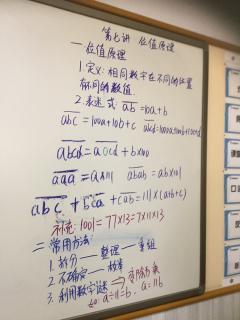 第七讲 位值原理
一.位值原理
1.定义:相同数字在不同的位置
有不同的数值
2.表达式 a̅b̅=10a+b
a̅b̅c̅=100a+10b+c a̅b̅c̅d̅=1000a+100b+10c+d
a̅b̅c̅d̅=a̅0̅c̅d̅+b×100
a̅a̅a̅=a×111 a̅b̅a̅b̅=a̅b̅×101
a̅b̅c̅+b̅c̅a̅+c̅a̅b̅=111×(a+b+c)
补充:1001=77×13=7×11×13
二.常用方法:
1.拆分——整理——重组
2.不确定——枚举
3.利用数字谜
a÷11=b. a=11b